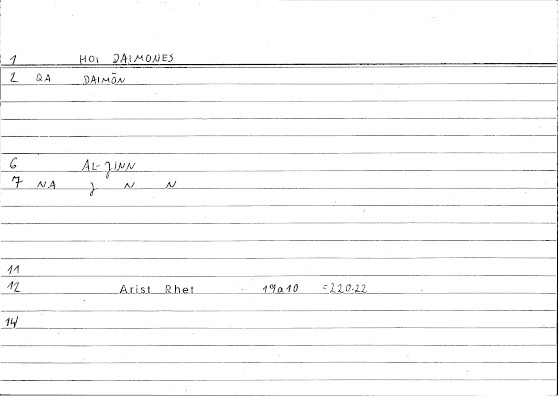 1 HOI DAIMONES
2 QA DAIMŌN
6 AL-JINN
7 NA J N N
11
12 Arist Rhet 19a10 =220.22
14